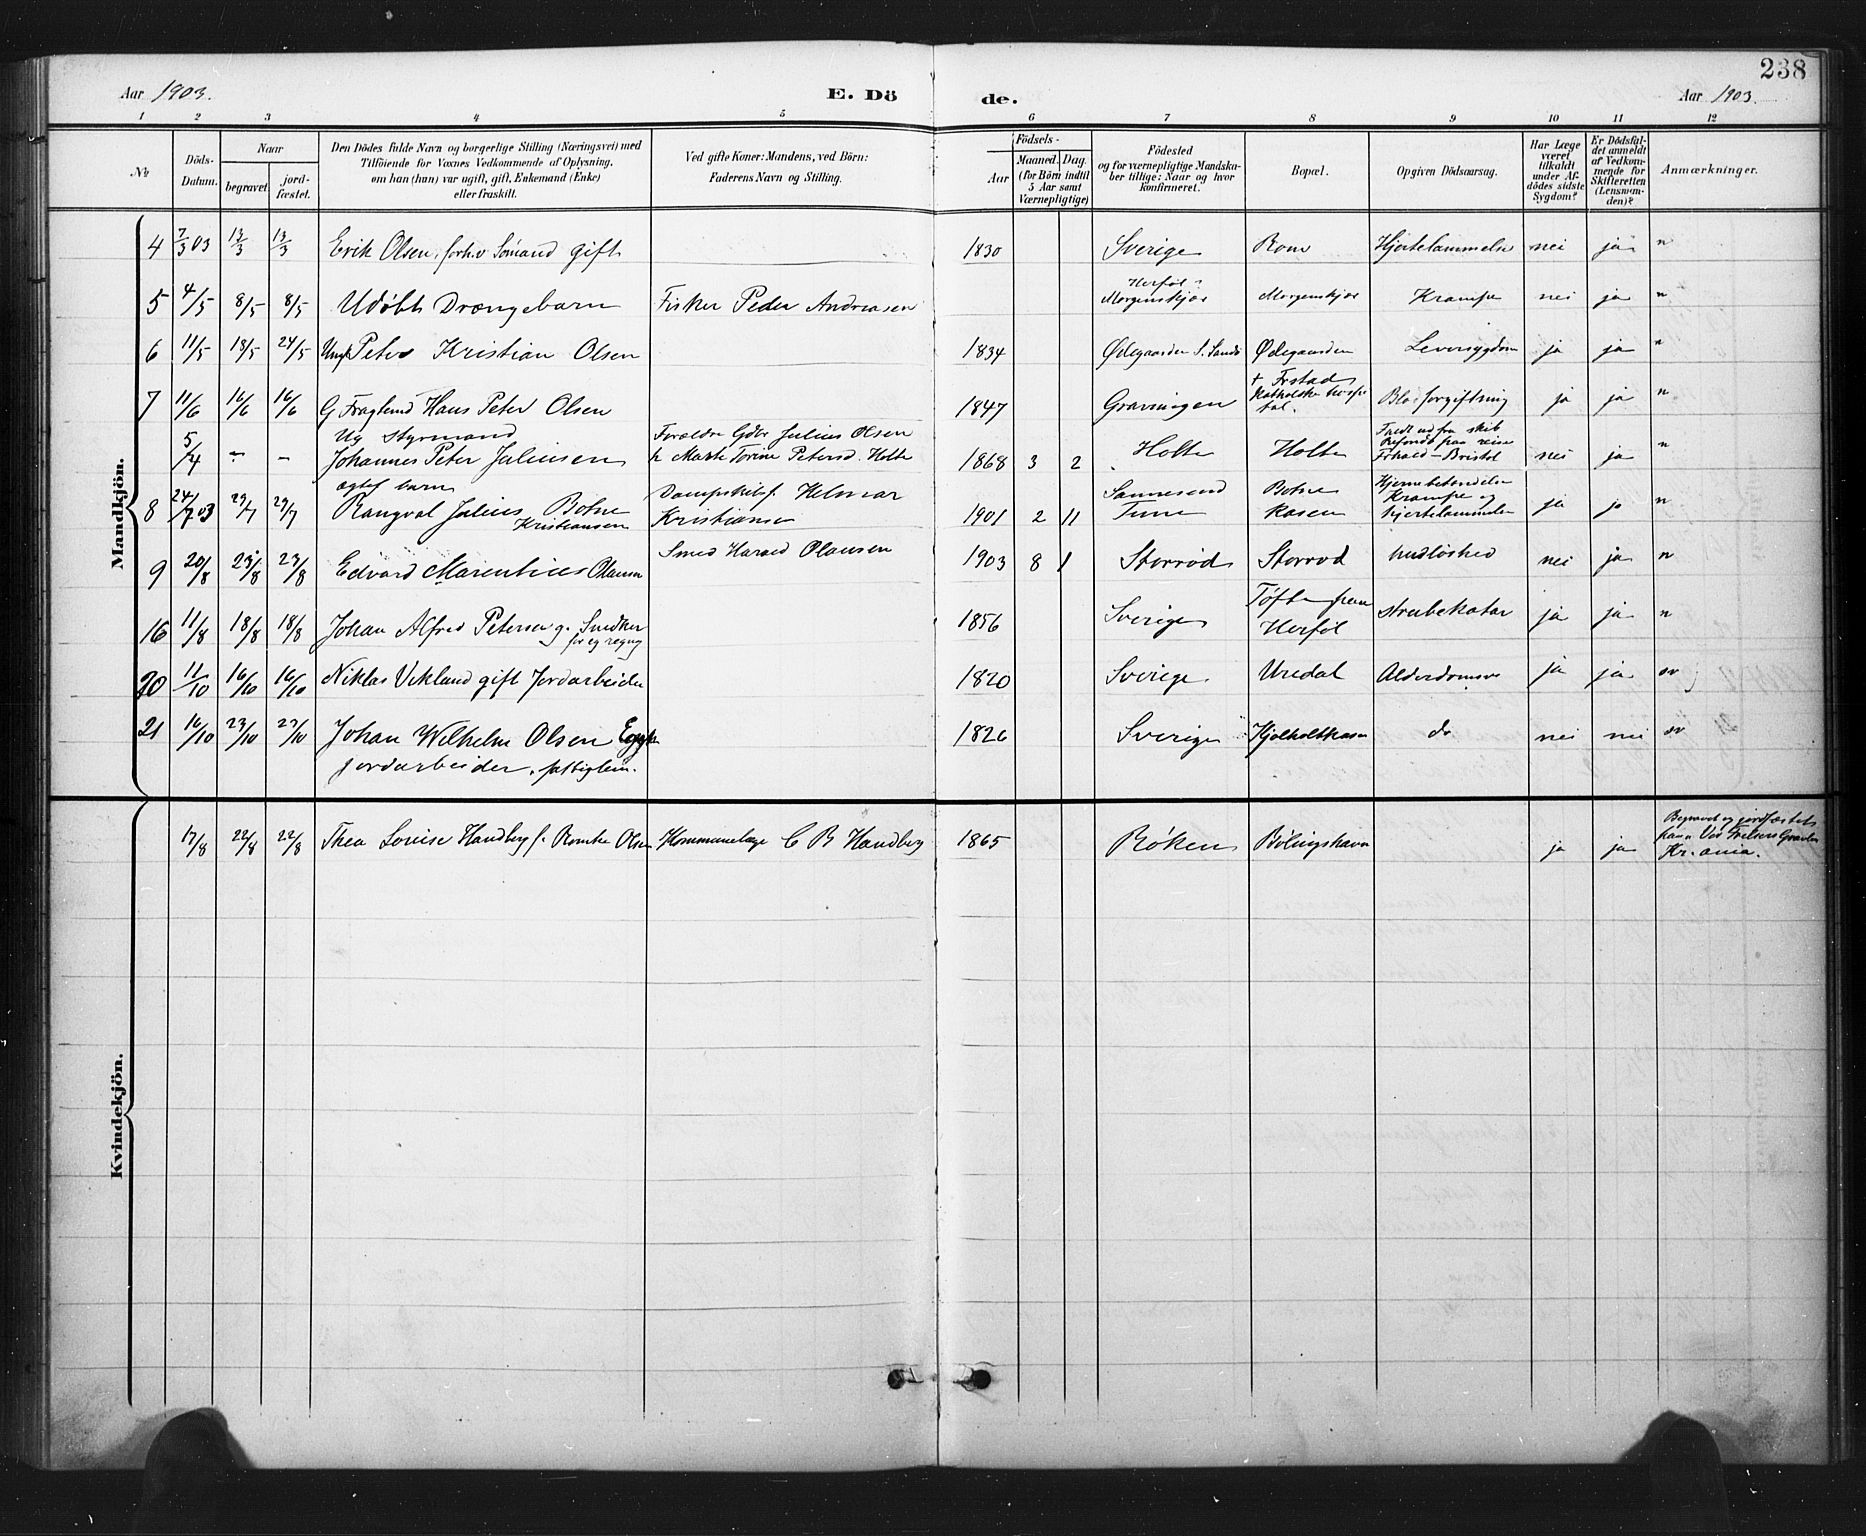 238
Aar 1903.
E. Dö
de.
Aar 1903.
1 2 3 4 5 6 7 8 9 10 11 12
No
Döds-
Datum.
Naar
begravet.
jord-
fæstet.
Den Dödes fulde Navn og borgerlige Stilling (Næringsvei) med
Tilföiende for Voxnes Vedkommende af Oplysning,
om han (hun) var ugift, gift, Enkemand (Enke)
eller fraskilt.
Ved gifte Koner: Mandens, ved Börn:
Faderens Navn og Stilling.
Födsels-
Aar
Maaned. Dag.
(for Börn indtil
5 Aar samt
Værnepligtige)
Födested
og for værnepligtige Mandska-
ber tillige: Naar og hvor
konfirmeret.
Bopæl.
Opgiven Dödsaarsag.
Har Læge
været
tilkaldt
under Af-
dödes sidste
Sygdom?
Er Dödsfal-
det anmeldt
af Vedkom-
mende for
Skifteretten
(Lensman-
den)?
Anmærkninger.
Mandkjön.
4 7/3 03 13/3 13/3 Erik Olsen, forhv Sömand gift 1830 Sverige Rom Hjertelammelse nei ja n
5 4/5 8/5 8/5 Udøbt Drængebarn Fisker Peder Andreasen Herføl Morgenskjær Morgenskjær Krampe nei ja n
6 11/5 18/5 24/5 Ungk Peter Kristian Olsen 1834 Ødegaarden S. Sandø Ødegaarden Leversygdom ja ja n
7 11/6 16/6 16/6 G Hans Peter Olsen 1847 Gravningen + Frstad Katholske hospi
tal. Blodforgiftning ja ja n
5/4 - - Ug Styrmand
Johannes Peter Juliussen Forældre Gdbr Julius Olsen
h Marte Torine Petersd. Holte 1868 3 2 Holte Holte Faldt ud fra skib
paa reise
Frhald - Bristol nei ja n
8 24/7 03 29/7 29/7 ægtef barn
Rangval Julius Botne
Kristiansen Dampskibsf. Helmar
Kristiansen 1901 2 11 Sannesund
Tune Botne
kasen Hjernebetændelse
Krampe og
hjertelammelse ja ja n
9 20/8 23/8 23/8 Edvard Marentius Olausen Smed Harald Olausen 1903 8 1 Storrød Storrød nei ja n
16 11/8 18/8 18/8 Johan Alfred Petersen g. Snedker
for eg regng 1856 Sverige Tøfte
Herføl strubekatar ja ja n
20 11/10 16/10 16/10 Niklas Vikland gift Jordarbeider 1820 Sverige Uredal Alderdomssv ja ja sv
21 16/10 23/10 23/10 Johan Wilhelm Olsen
Jordarbeider, fattiglem. 1826 Sverige Hjolholtkasen do nei nei sv
Kvindekjön.
17/8 22/8 22/8 Thea Louise Handberg f. Olsen Kommunelæge C B Handberg 1865 Røken Bölingshavn ja ja Begravet og jordfæstet
paa Vor Frelsers Gravlun
Kr.ania.